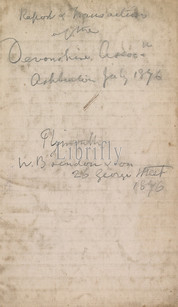 Report & Transactions
of the
Devonshire Assocn
Ashburton July 1896
Plymouth
W. Brendon & Son
26 George Street
1896